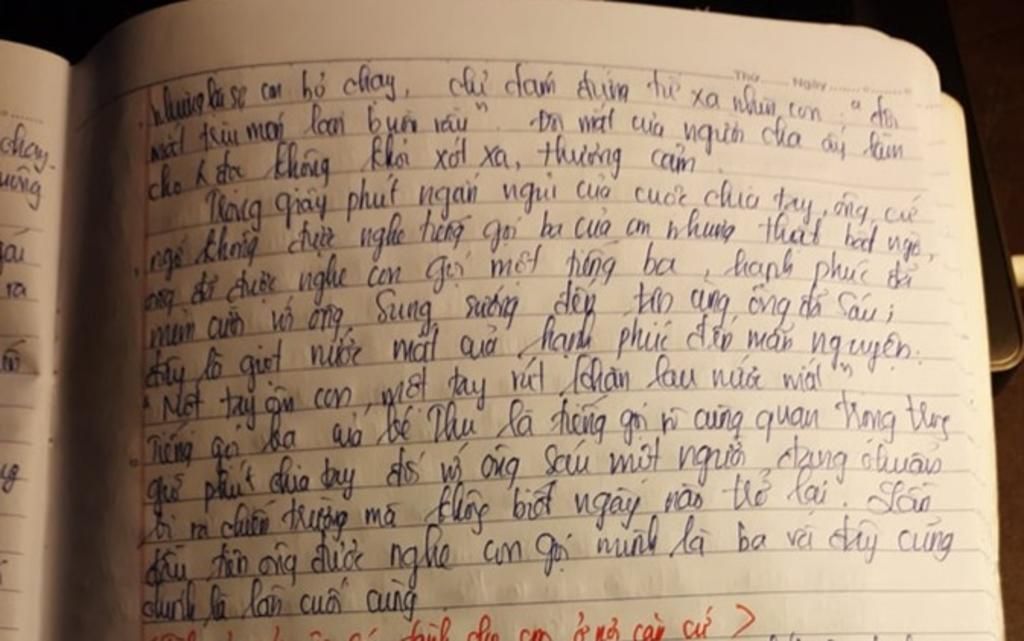 Thứ..... Ngày.........
nhưng lại sợ con bỏ chạy, chỉ dám đứng từ xa nhìn con "đôi
mắt trìu mến lẫn buồn rầu". Đôi mắt của người cha ấy làm
cho k đọc không khỏi xót xa, thương cảm
Trong giây phút ngắn ngủi của cuộc chia tay, ông cứ
ngỡ không được nghe tiếng gọi ba của con nhưng thật bất ngờ,
ông đã được nghe con gọi một tiếng ba, hạnh phúc đã
mỉm cười với ông. Sung sướng đến tận cùng, ông đã
đây là giọt nước mắt của hạnh phúc đến mãn nguyện.
"Một tay ôm con, một tay rút khăn lau nước mắt"
Tiếng gọi ba của bé Thu là tiếng gọi vô cùng quan trọng trong
giờ phút chia tay đối với ông Sáu một người đang chuẩn
bị ra chiến trường mà không biết ngày nào trở lại. Lần
đầu tiên ông được nghe con gọi mình là ba và đây cũng
chính là lần cuối cùng
cho con ở nơi căn cứ